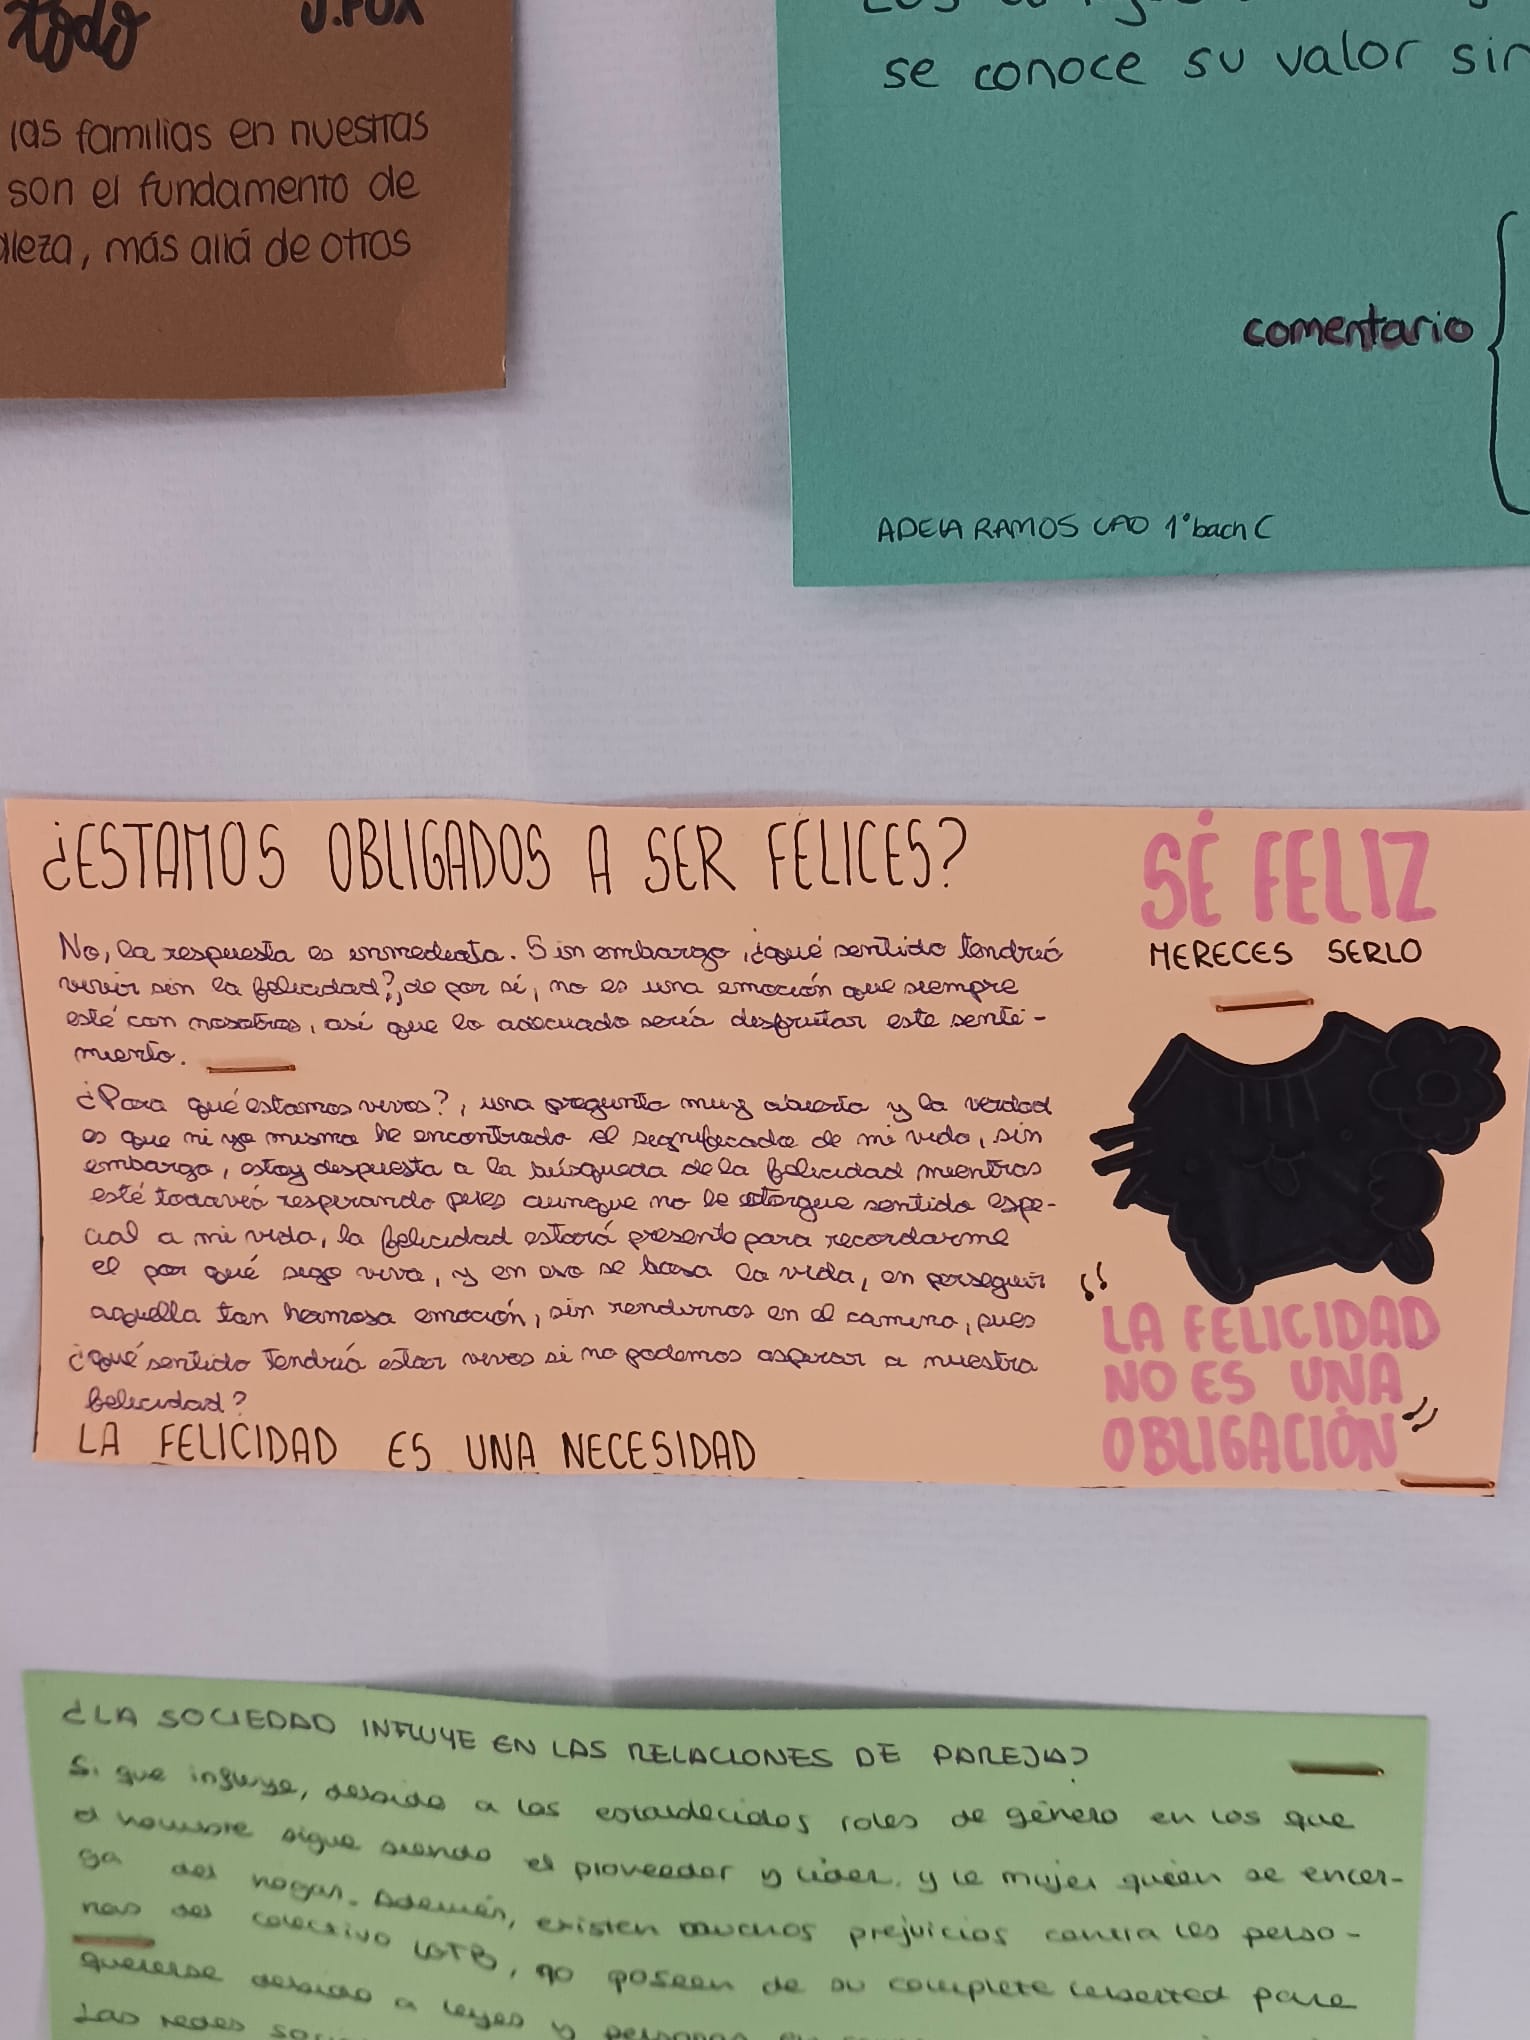 todo
J.FOX
las familias en nuestras
son el fundamento de
lleza, más allá de otros
se conoce su valor sin
comentario
ADELA RAMOS CAO 1º bach C
¿ESTAMOS OBLIGADOS A SER FELICES?
No, la respuesta es inmediata. Sin embargo, ¿qué sentido tendría
vivir sin la felicidad?, de por sí, no es una emoción que siempre
esté con nosotros, así que lo adecuado sería disfrutar este senti-
miento.
¿Para qué estamos vivos?, una pregunta muy abierta y la verdad
es que ni yo misma he encontrado el significado de mi vida, sin
embargo, estoy despuesta a la búsqueda de la felicidad mientras
esté todavía respirando pues aunque no le otorgue sentido espe-
cial a mi vida, la felicidad estará presente para recordarme
el por qué sigo viva, y en eso se basa la vida, en perseguir
aquella tan hermosa emoción, sin rendirnos en el camino, pues
¿qué sentido tendría estar vivos si no podemos aspirar a nuestra
felicidad?
LA FELICIDAD ES UNA NECESIDAD
SÉ FELIZ
MERECES SERLO
"LA FELICIDAD
NO ES UNA
OBLIGACIÓN"
¿LA SOCIEDAD INFLUYE EN LAS RELACIONES DE PAREJA?
Si que influye, debido a los establecidos roles de género en los que
el hombre sigue siendo el proveedor y líder, y la mujer quien se encar-
ga del hogar. Además, existen muchos prejuicios contra las perso-
nas del colectivo LGTB, no poseen de su completa libertad para
quererse debido a leyes y personas
Las redes